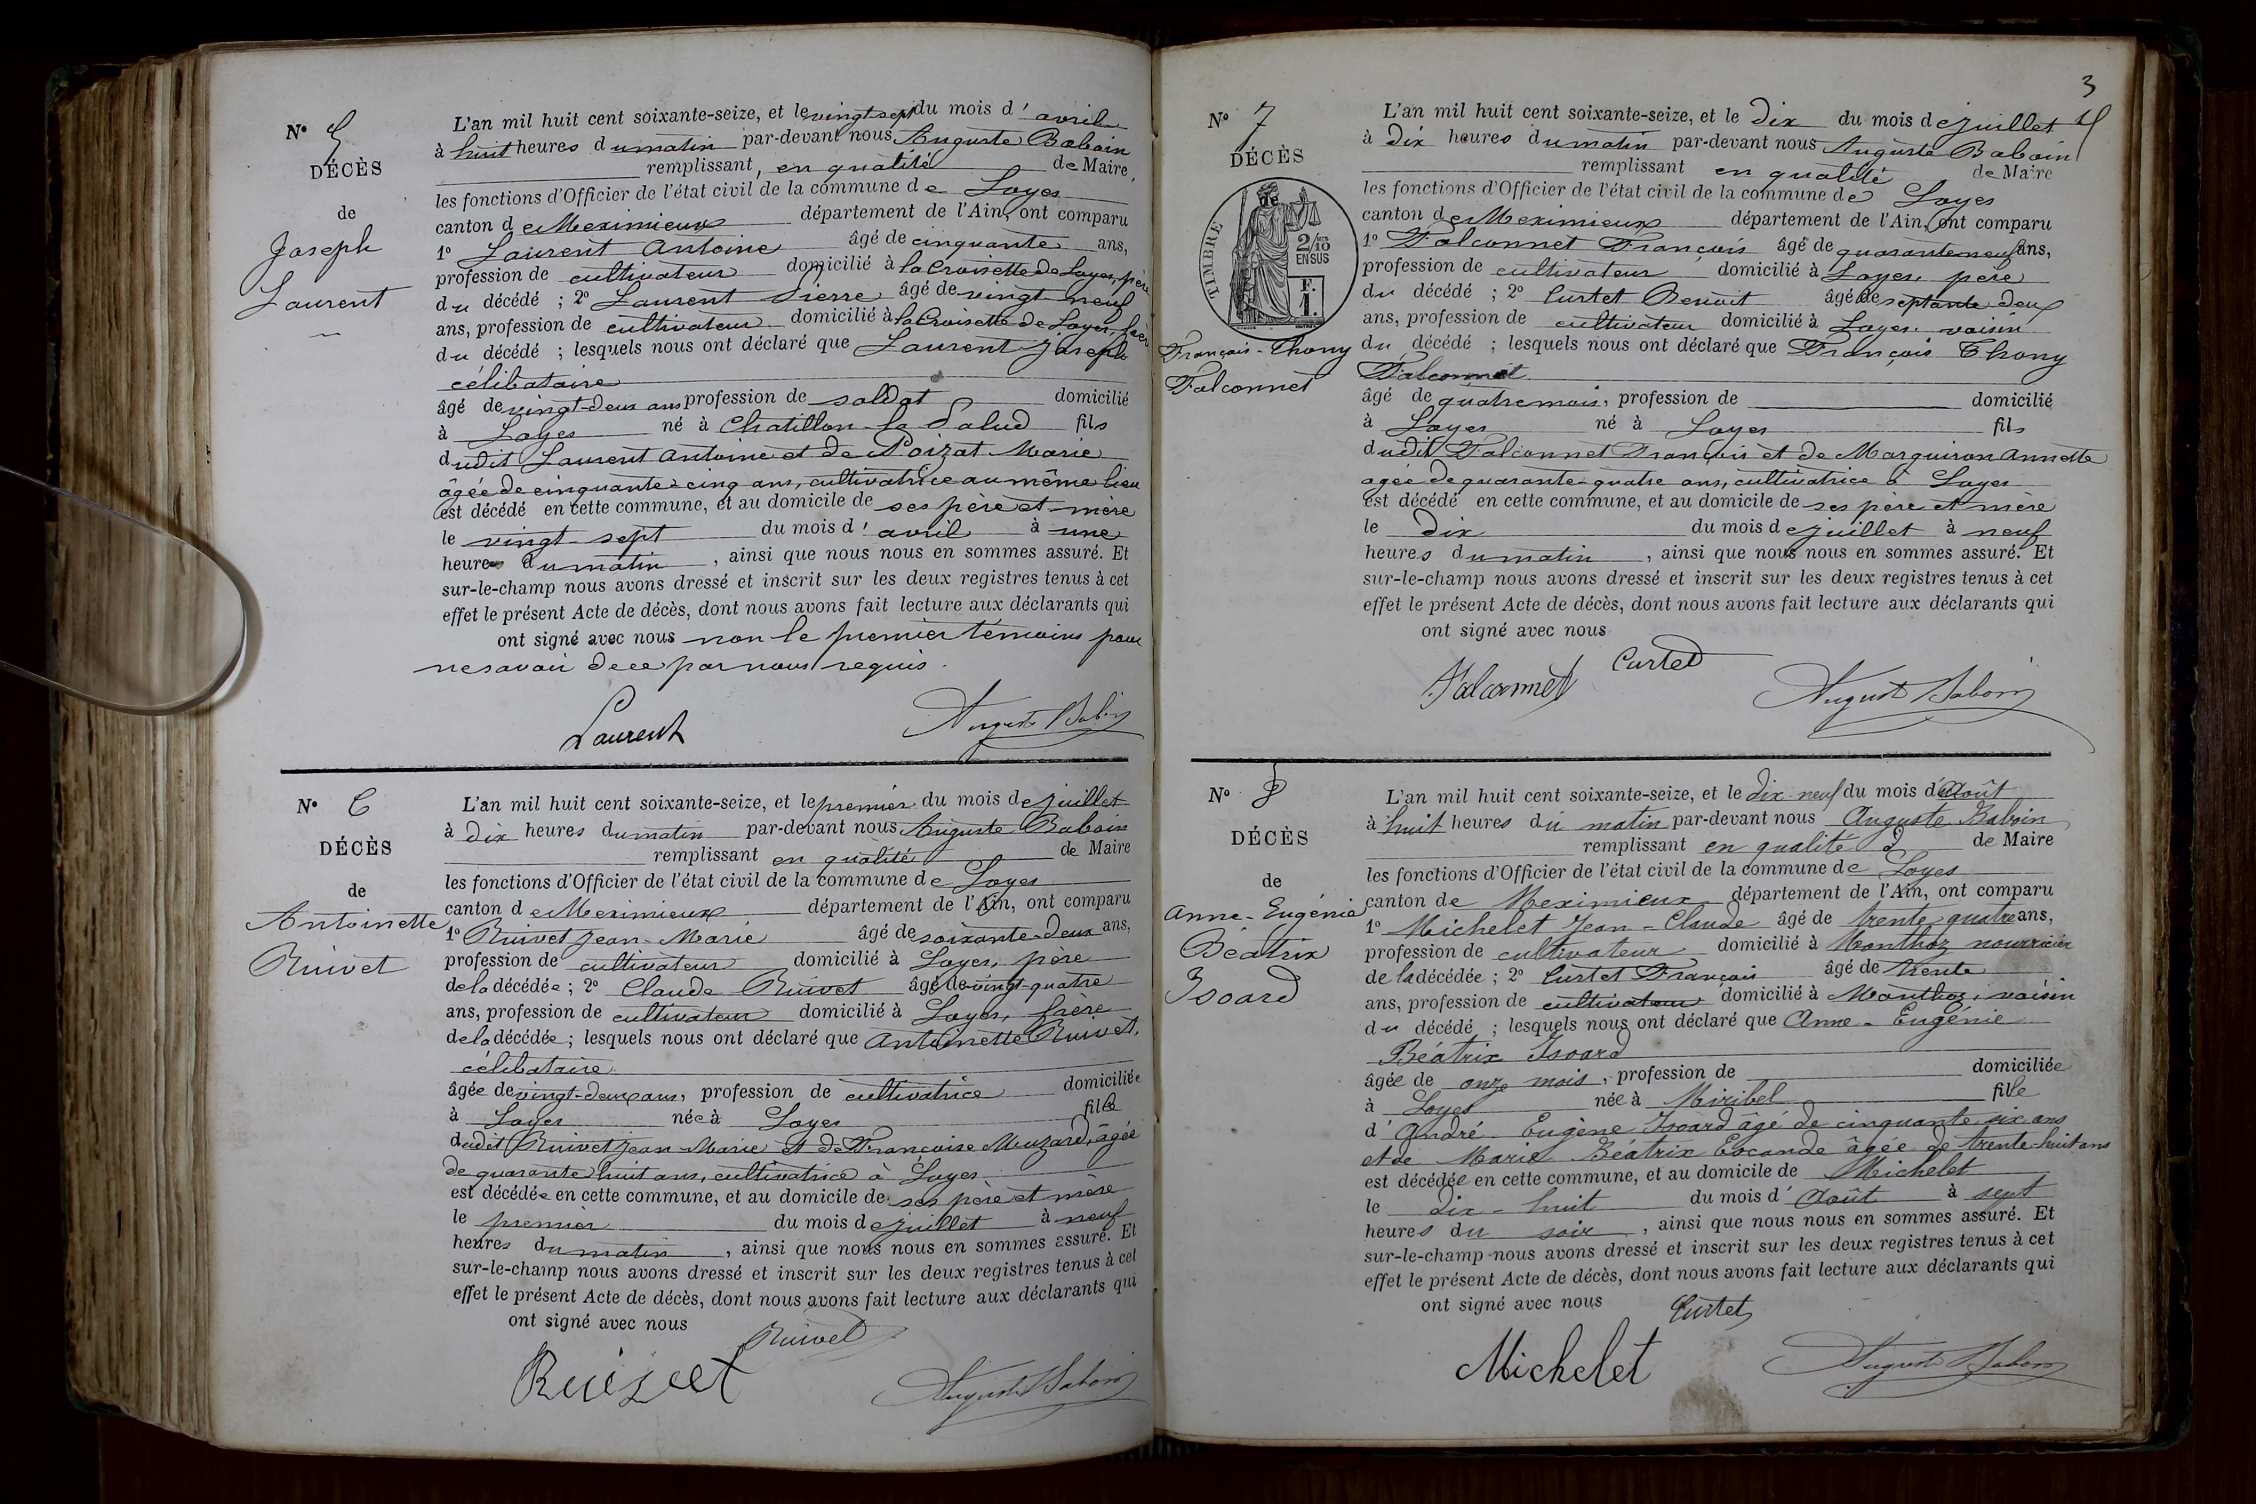 N° 5
DÉCÈS
de
Joseph
Laurent
L'an mil huit cent soixante-seize, et le vingt sept du mois d'avril
à huit heures du matin par-devant nous Auguste Baboin
remplissant, en qualité de Maire,
les fonctions d'Officier de l'état civil de la commune de Loyes
canton de Meximieux département de l'Ain, ont comparu
1° Laurent Antoine âgé de cinquante ans,
profession de cultivateur domicilié à la Croisette de Loyes, père
du décédé ; 2° Laurent Pierre âgé de vingt neuf
ans, profession de cultivateur domicilié à la Croisette de Loyes, frère
du décédé ; lesquels nous ont déclaré que Laurent Joseph
célibataire
âgé de vingt-deux ans profession de soldat domicilié
à Loyes né à Chatillon la Palud fils
dudit Laurent Antoine et de Poizat Marie
âgée de cinquante-cinq ans, cultivatrice au même lieu
est décédé en cette commune, et au domicile de ses père et mère
le vingt-sept du mois d'avril à une
heure du matin, ainsi que nous nous en sommes assuré. Et
sur-le-champ nous avons dressé et inscrit sur les deux registres tenus à cet
effet le présent Acte de décès, dont nous avons fait lecture aux déclarants qui
ont signé avec nous non le premier témoins pour
ne savoir de ce par nous requis.
Laurent
Auguste Baboin
N° 6
DÉCÈS
de
Antoinette
Ruivet
L'an mil huit cent soixante-seize, et le premier du mois de juillet
à dix heures du matin par-devant nous Auguste Baboin
remplissant en qualité de Maire
les fonctions d'Officier de l'état civil de la commune de Loyes
canton de Meximieux département de l'Ain, ont comparu
1° Ruivet Jean-Marie âgé de soixante-deux ans,
profession de cultivateur domicilié à Loyes, père
de la décédée ; 2° Claude Ruivet âgé de vingt-quatre
ans, profession de cultivateur domicilié à Loyes, frère
de la décédée ; lesquels nous ont déclaré que Antoinette Ruivet,
célibataire
âgée de vingt-deux ans, profession de cultivatrice domiciliée
à Loyes née à Loyes fille
dudit Ruivet Jean-Marie et de Françoise Muzard, âgée
de quarante huit ans, cultivatrice à Loyes
est décédée en cette commune, et au domicile de ses père et mère
le premier du mois de juillet à neuf
heures du matin, ainsi que nous nous en sommes assuré. Et
sur-le-champ nous avons dressé et inscrit sur les deux registres tenus à cet
effet le présent Acte de décès, dont nous avons fait lecture aux déclarants qui
ont signé avec nous
Ruivet
Ruivet
Auguste Baboin
3
N° 7
DÉCÈS
de
TIMBRE
2/10 EN SUS
F. 1.
François-Thony
Falconnet
L'an mil huit cent soixante-seize, et le dix du mois de juillet
à dix heures du matin par-devant nous Auguste Baboin
remplissant en qualité de Maire
les fonctions d'Officier de l'état civil de la commune de Loyes
canton de Meximieux département de l'Ain, ont comparu
1° Falconnet François âgé de quarante neuf ans,
profession de cultivateur domicilié à Loyes, père
du décédé ; 2° Curtet Benoit âgé de septante deux
ans, profession de cultivateur domicilié à Loyes voisin
du décédé ; lesquels nous ont déclaré que François Thony
Falconnet
âgé de quatre mois, profession de domicilié
à Loyes né à Loyes fils
dudit Falconnet François et de Marguiron Annette
agée de quarante-quatre ans, cultivatrice à Loyes
est décédé en cette commune, et au domicile de ses père et mère
le dix du mois de juillet à neuf
heures du matin, ainsi que nous nous en sommes assuré. Et
sur-le-champ nous avons dressé et inscrit sur les deux registres tenus à cet
effet le présent Acte de décès, dont nous avons fait lecture aux déclarants qui
ont signé avec nous
Falconnet
Curtet
Auguste Baboin
N° 8
DÉCÈS
de
Anne-Eugénie
Béatrix
Isoard
L'an mil huit cent soixante-seize, et le dix-neuf du mois d'Août
à huit heures du matin par-devant nous Auguste Baboin
remplissant en qualité d de Maire
les fonctions d'Officier de l'état civil de la commune de Loyes
canton de Meximieux département de l'Ain, ont comparu
1° Michelet Jean-Claude âgé de trente quatre ans,
profession de cultivateur domicilié à Monthoz nourricier
de la décédée ; 2° Curtet François âgé de trente
ans, profession de cultivateur domicilié à Monthoz, voisin
du décédé ; lesquels nous ont déclaré que Anne-Eugénie
Béatrix Isoard
âgée de onze mois, profession de domiciliée
à Loyes née à Miribel fille
d'André-Eugène Isoard âgé de cinquante six ans
et de Marie Béatrix Escande âgée de trente-huit ans
est décédée en cette commune, et au domicile de Michelet
le dix-huit du mois d'Août à sept
heures du soir, ainsi que nous nous en sommes assuré. Et
sur-le-champ nous avons dressé et inscrit sur les deux registres tenus à cet
effet le présent Acte de décès, dont nous avons fait lecture aux déclarants qui
ont signé avec nous
Curtet
Michelet
Auguste Baboin